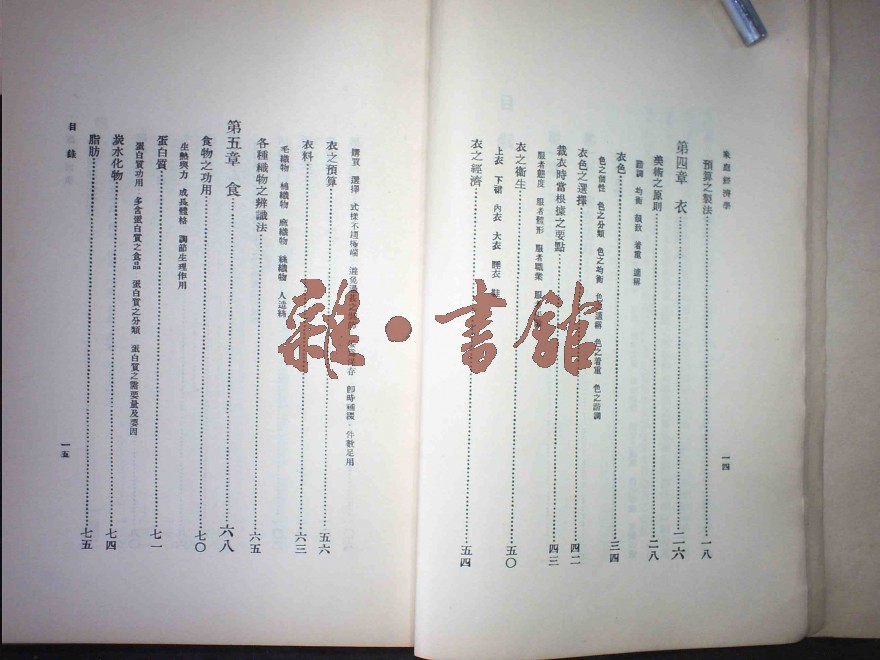 家庭經濟學
一四
預算之製法 一八
第四章 衣 二六
美術之原則 二八
諧調 均衡 韻致 着重 適稱
衣色 三四
色之個性 色之分類 色之均衡 色 適稱 色之着重 色之諧調
衣色之選擇 四二
裁衣時當根據之要點 四三
服者態度 服者體形 服者職業 服
衣之衛生 五〇
上衣 下裙 內衣 大衣 睡衣 鞋
衣之經濟 五四
購買 選擇 式樣不趨極端 避免 存 卽時補綴 件數足用
衣之預算 五六
衣料 六三
毛織物 棉織物 麻織物 絲織物 人造絲
各種織物之辨識法 六五
第五章 食 六八
食物之功用 七〇
生熱與力 成長體格 調節生理作用
蛋白質 七一
蛋白質功用 多含蛋白質之食品 蛋白質之分類 蛋白質之需要量及要因
炭水化物 七四
脂肪 七五
目錄
一五
雜·書館